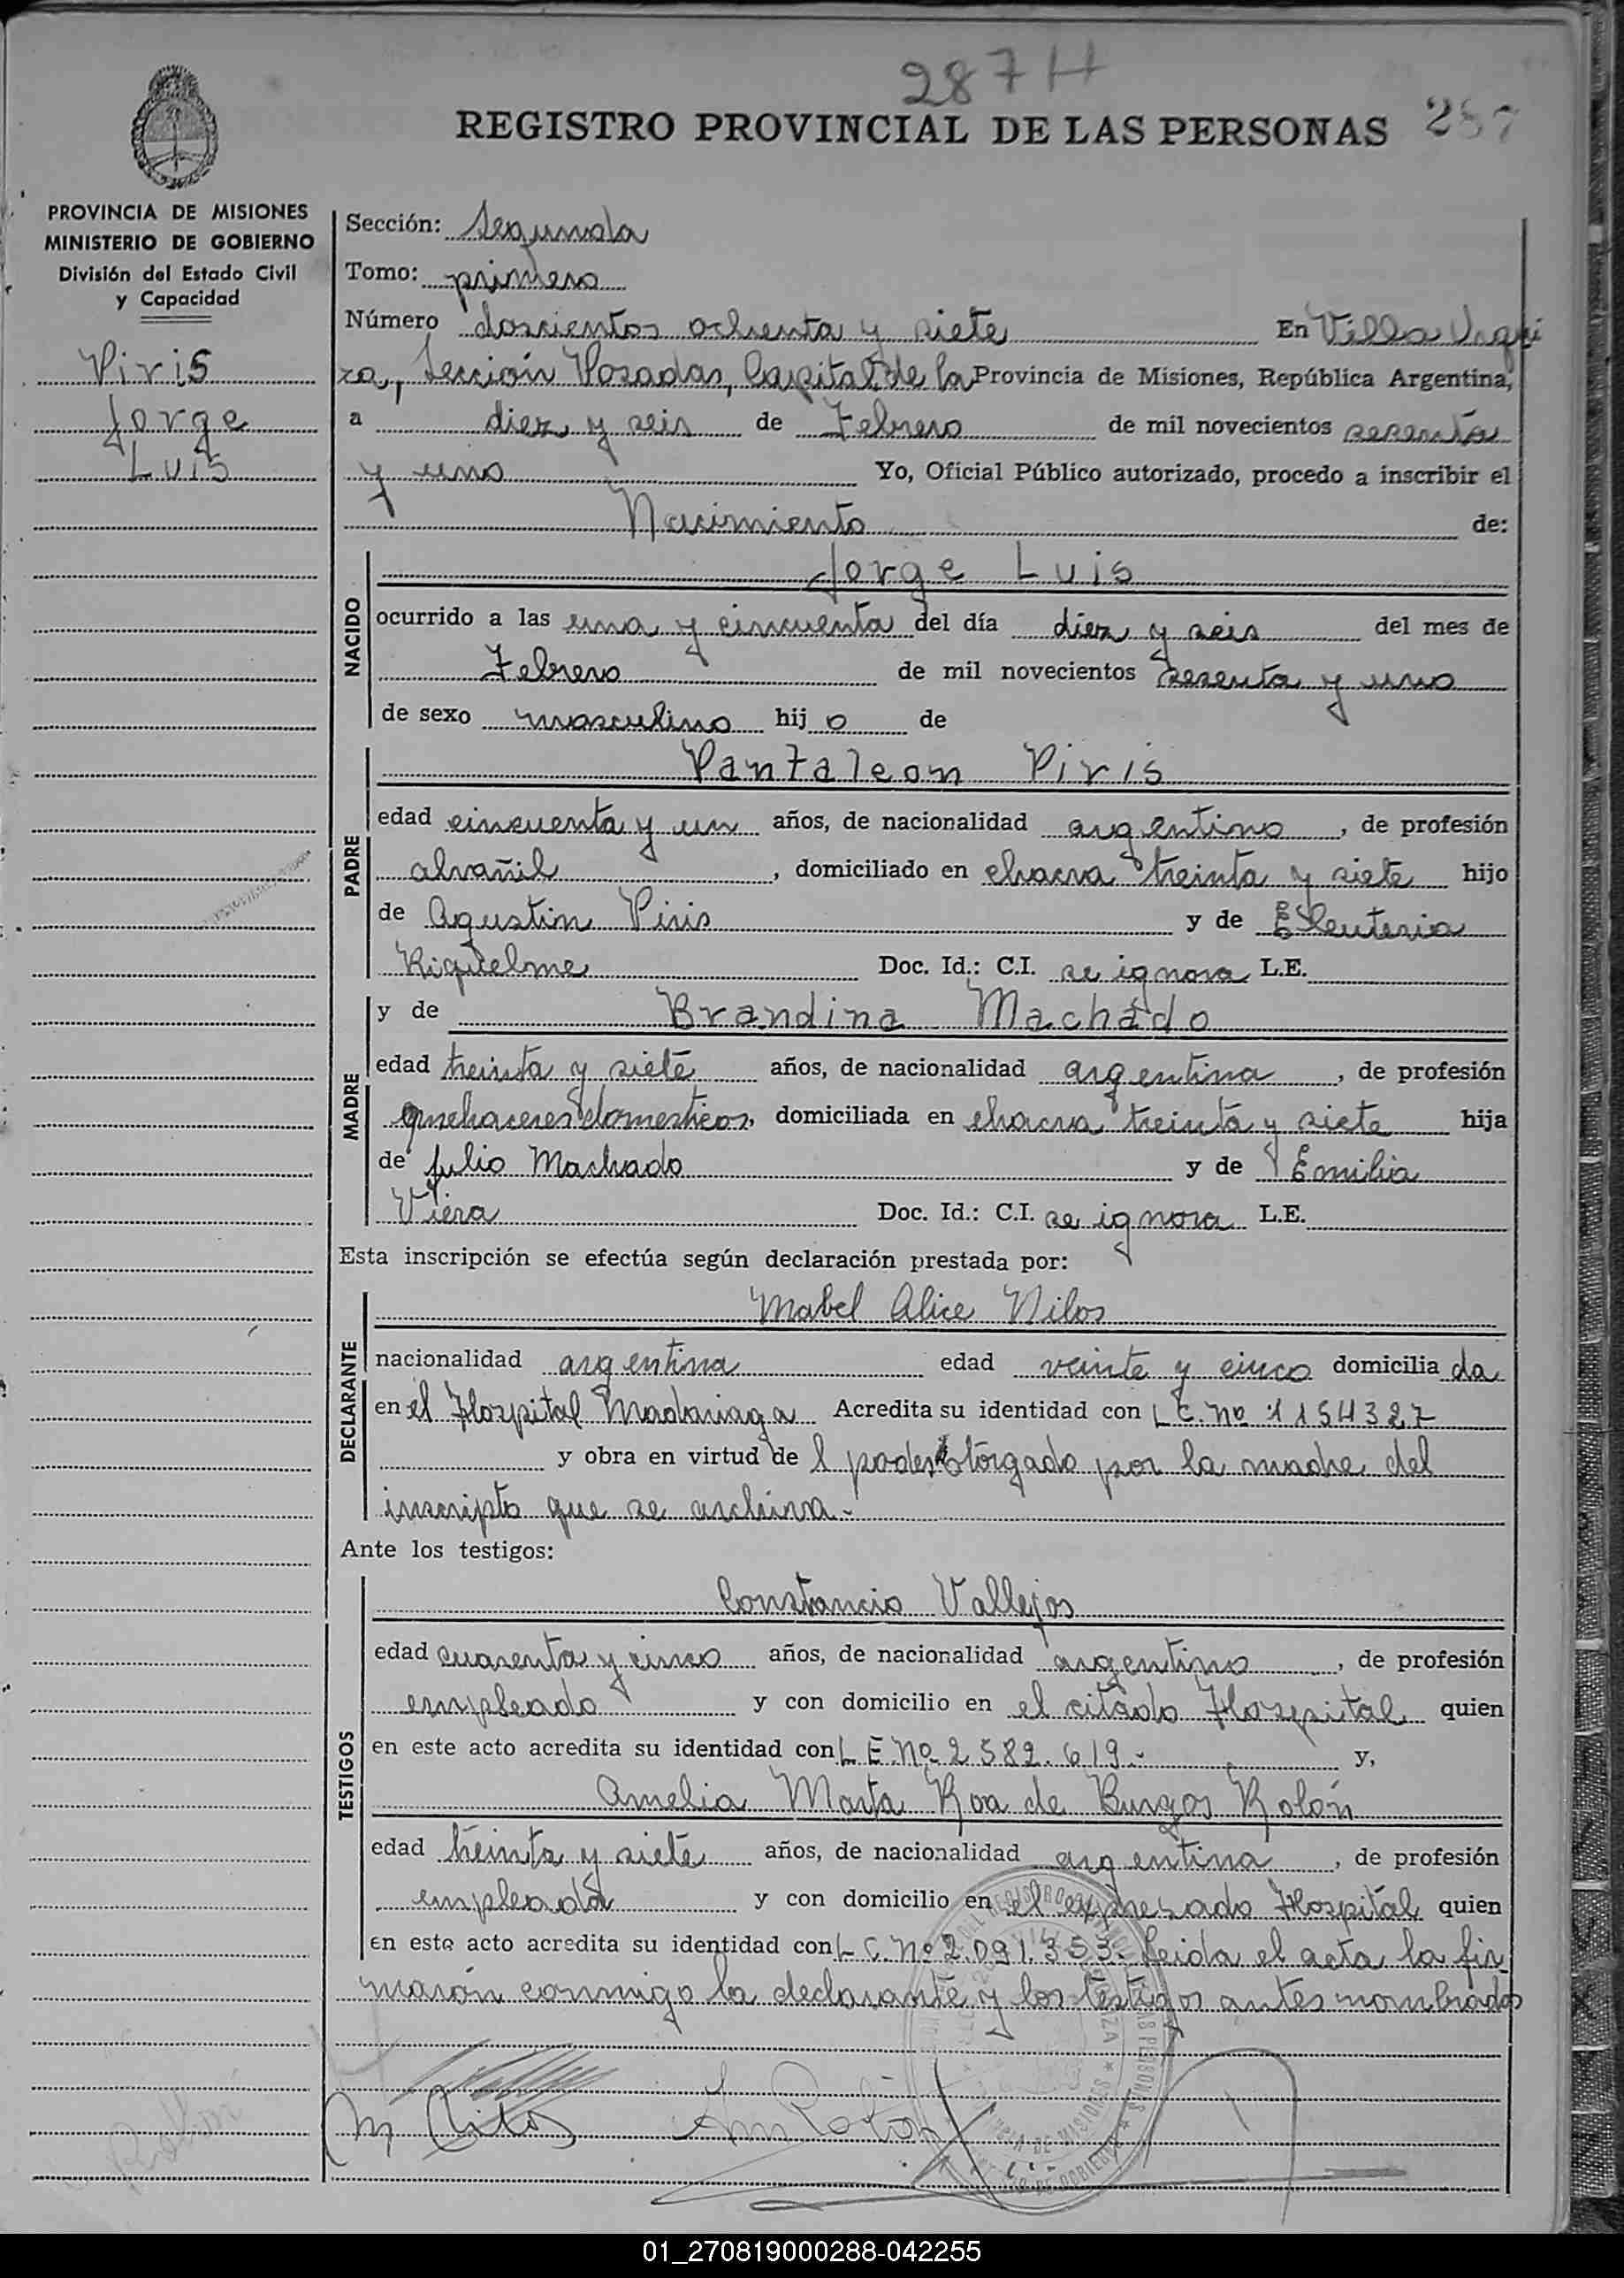 287 H
REGISTRO PROVINCIAL DE LAS PERSONAS 287
PROVINCIA DE MISIONES
MINISTERIO DE GOBIERNO
División del Estado Civil
y Capacidad
Piris
Jorge
Luis
Sección: Segunda
Tomo: primero
Número doscientos ochenta y siete En Villa Urqui
za, Sección Posadas, Capital de la Provincia de Misiones, República Argentina,
a diez y seis de Febrero de mil novecientos sesenta
y uno Yo, Oficial Público autorizado, procedo a inscribir el
Nacimiento de:
NACIDO
Jorge Luis
ocurrido a las una y cincuenta del día diez y seis del mes de
Febrero de mil novecientos sesenta y uno
de sexo masculino hijo de
PADRE
Pantaleon Piris
edad cincuenta y un años, de nacionalidad argentino, de profesión
alvañil, domiciliado en chacra treinta y siete hijo
de Agustin Piris y de Eleuteria
Riquelme Doc. Id.: C.I. se ignora L.E.
MADRE
y de Brandina Machado
edad treinta y siete años, de nacionalidad argentina, de profesión
quehaceres domesticos, domiciliada en chacra treinta y siete hija
de Julio Machado y de Emilia
Viera Doc. Id.: C.I. se ignora L.E.
Esta inscripción se efectúa según declaración prestada por:
DECLARANTE
Mabel Alice
nacionalidad argentina edad veinte y cinco domiciliada
en el Hospital Madariaga Acredita su identidad con L C. Nº 1154327
y obra en virtud del poder otorgado por la madre del
inscripto que se archiva.-
Ante los testigos:
TESTIGOS
Constancio Vallejos
edad cuarenta y cinco años, de nacionalidad argentino, de profesión
empleado y con domicilio en el citado Hospital quien
en este acto acredita su identidad con L E. Nº 2 582.619.- y,
Amelia Marta Roa de Burgos Rolón
edad treinta y siete años, de nacionalidad argentina, de profesión
empleada y con domicilio en el expresado Hospital quien
en este acto acredita su identidad con L C. Nº 2.091.353.- Leida el acta la fir
marón conmigo la declarante y los testigos antes nombrados
01_270819000288-042255